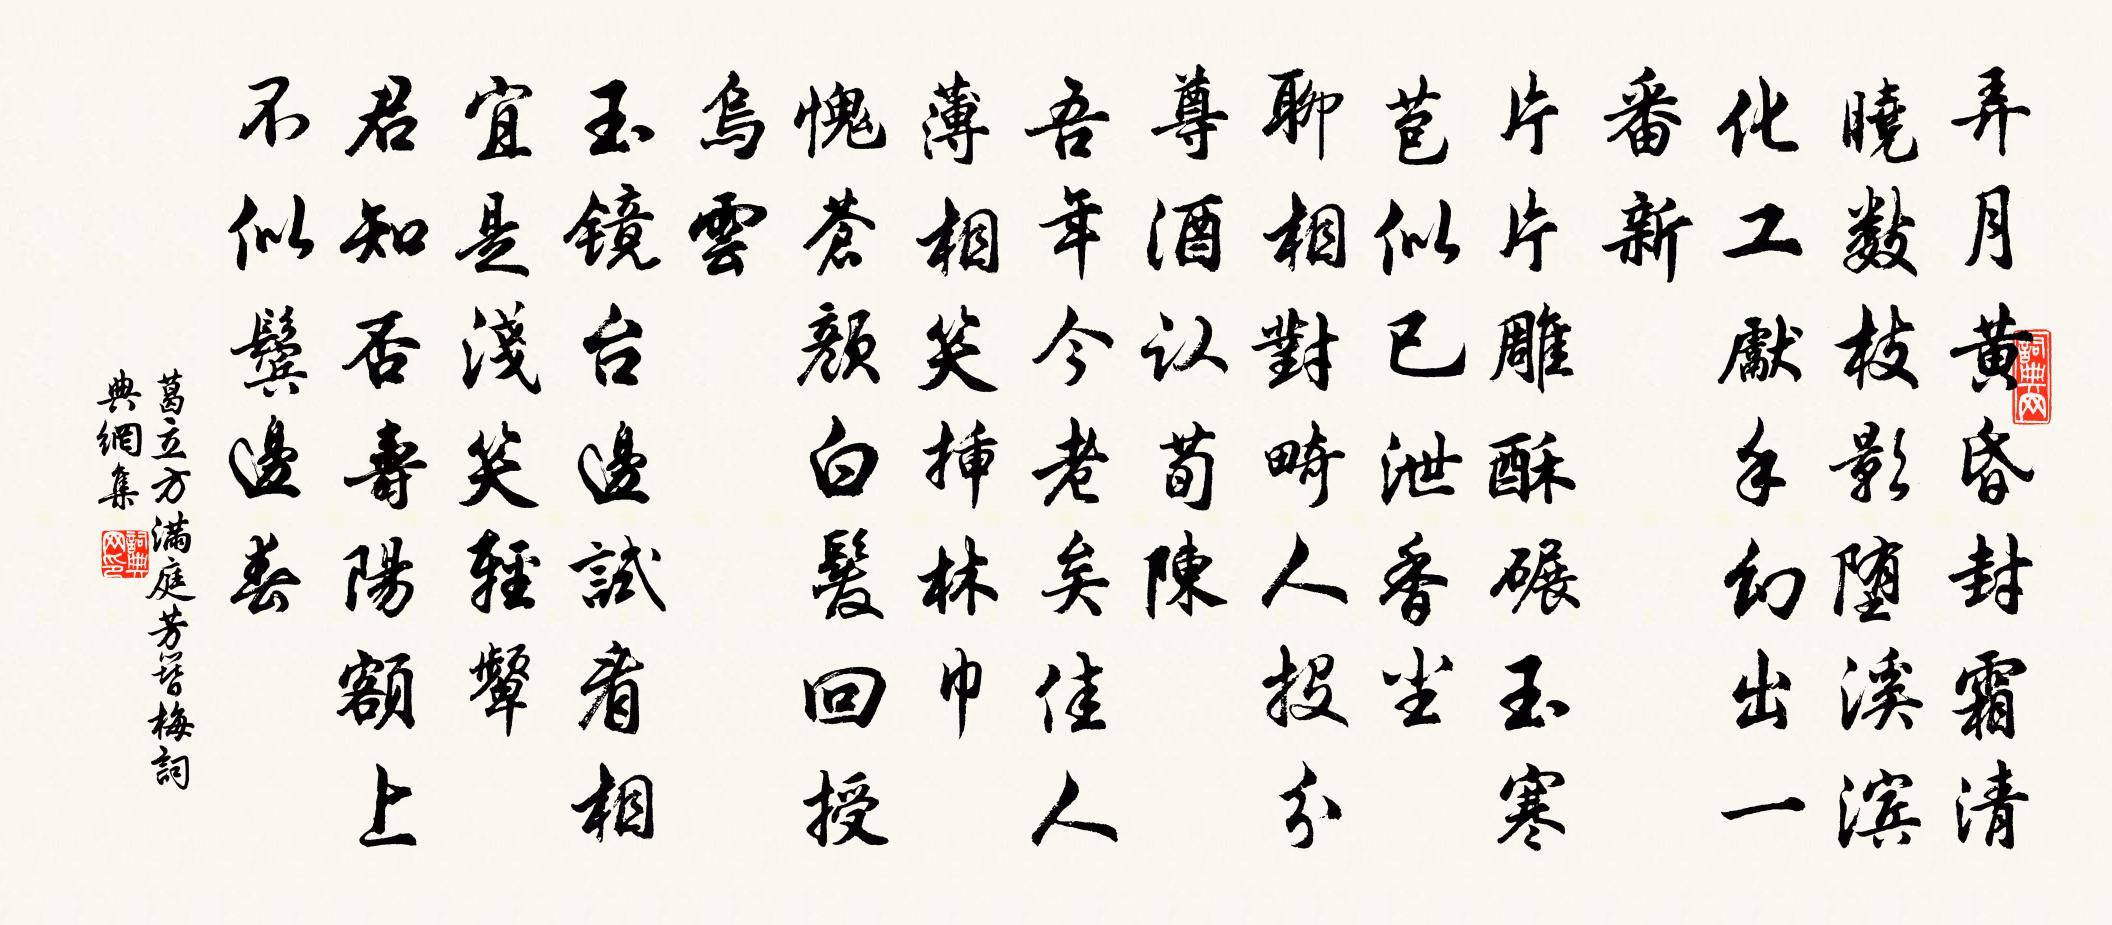 弄月黄昏封霜清
曉數枝影墮溪滨
化工獻手幻出一
番新
片片雕酥碾玉寒
苞似已泄香尘
聊相對畸人投分
尊酒认荀陳
吾年今老矣佳人
薄相笑挿林巾
愧蒼顔白髮回授
烏雲
玉镜台邊試看相
宜是淺笑輕顰
君知否壽陽額上
不似鬓邊春
葛立方滿庭芳簪梅詞
典網集
詞典网
詞典网印